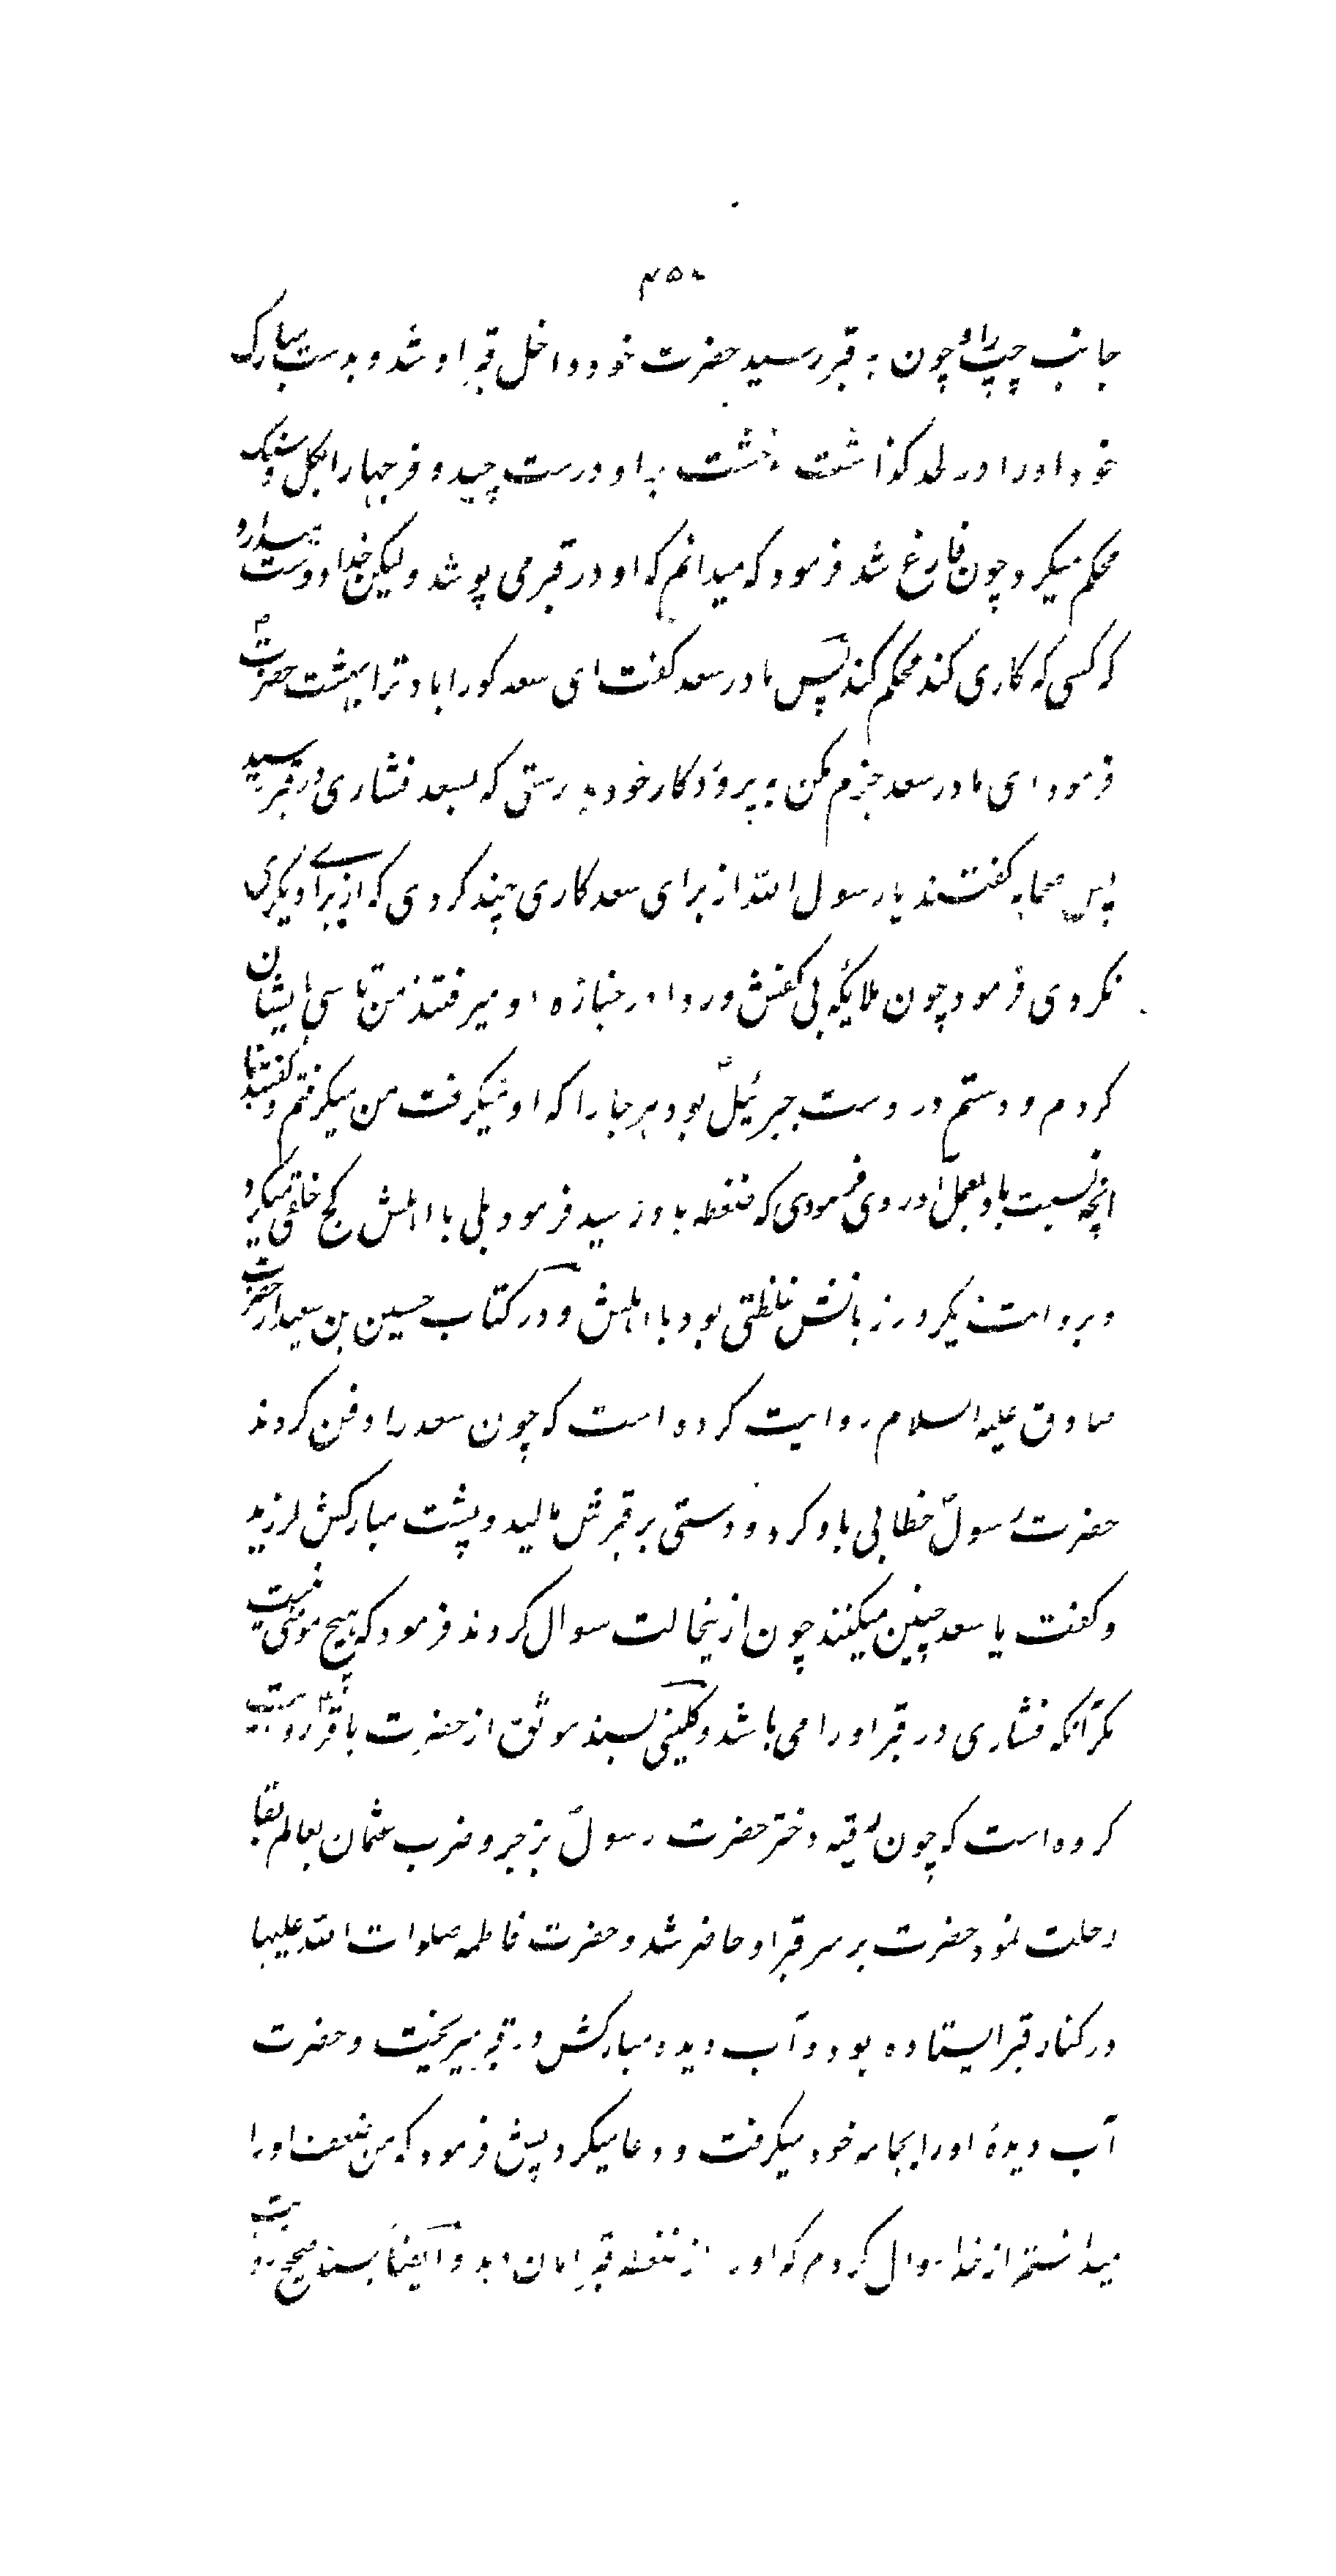 ۴۵۰
جانب چپ را و چون به قبر رسید حضرت خود داخل قبر او شد و بدست مبارک
خود او را در لحد گذاشت و خشت بر او درست چید و فرجها را بگل و سنگ
محکم میکرد چون فارغ شد فرمود که میدانم که او در قبر می پوشد و لیکن خدا دوست میدارد
که کسی که کاری کند محکم کند پس مادر سعد گفت ای سعد گورا باد ترا بهشت حضرت
فرمود ای مادر سعد جزم مکن به پروردکار خود بدرستی که بسعد فشاری در قبر رسید
پس صحابه گفتند یا رسول الله از برای سعد کاری چند کردی که از برای دیگری
نکردی فرمود چون ملایکه بی کفش و ردا در جنازه او میرفتند من تاسی بایشان
کردم و دستم در دست جبرئیل بود هر جا را که او میگرفت من میگرفتم گفتند با
آنچه نسبت باو بعمل آوردی فرمودی که ضغطه باو رسید فرمود بلی با اهلش کج خلقی میکرد
و بروایت دیگر در زبانش غلظتی بود با اهلش و در کتاب حسین بن سعید از حضرت
صادق علیه السلام روایت کرده است که چون سعد را دفن کردند
حضرت رسول خطابی باو کرد و دستی بر قبرش مالید و پشت مبارکش لرزید
و گفت یا سعد چنین میکنند چون از ینحالت سوال کردند فرمود که هیچ مومنی نیست
مگر آنکه فشاری در قبر او را می باشد و کلینی بسند موثق از حضرت باقر روایت
کرده است که چون رقیه دختر حضرت رسول بزجر و ضرب عثمان بعالم بقا
رحلت نمود حضرت بر سر قبر او حاضر شد و حضرت فاطمه صلوات الله علیها
در کنار قبر ایستاده بود و آب دیده مبارکش در قبر میریخت و حضرت
آب دیدهٔ او را بجامه خود میگرفت و دعا میکرد پس فرمود که من ضعف او را
میدانستم از خدا سوال کردم که او را از ضغطه قبر امان دهد و ایضاً بسند صحیح روایت